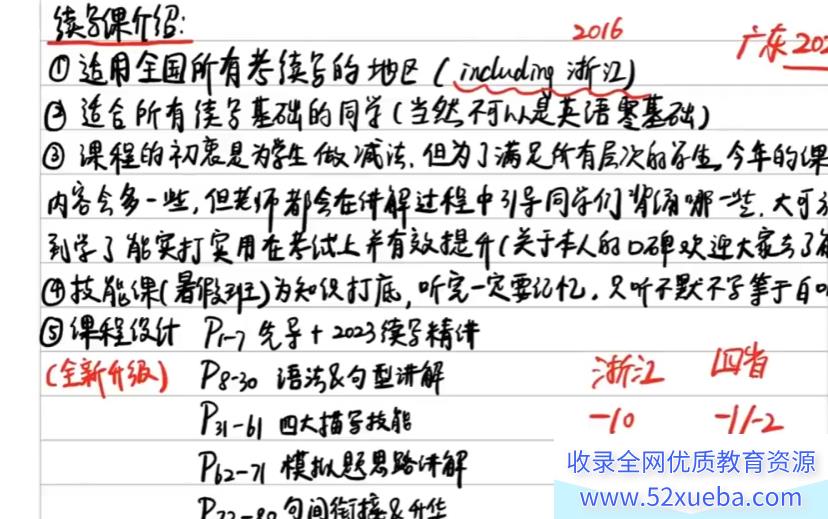 续写课介绍:
2016
广东 202
① 适用全国所有考续写的地区 (including 浙江)
② 适合所有续写基础的同学(当然不可以是英语零基础)
③ 课程的初衷是为学生做减法, 但为了满足所有层次的学生, 今年的课
内容会多一些, 但老师都会在讲解过程中引导同学们背诵哪一些, 大可
到学了能实打实用在考试上并有效提升(关于本人的口碑欢迎大家去了解
④ 技能课(暑假班)为知识打底, 听完一定要记忆, 只听不默不写等于白
⑤ 课程设计 P1-7 先导 + 2023续写精讲
(全新升级) P8-30 语法&句型讲解
浙江 四省
P31-61 四大描写技能
-10 -1/-2
P62-71 模拟题思路讲解
P72-80 句间衔接&升华
收录全网优质教育资源
www.52xueba.com